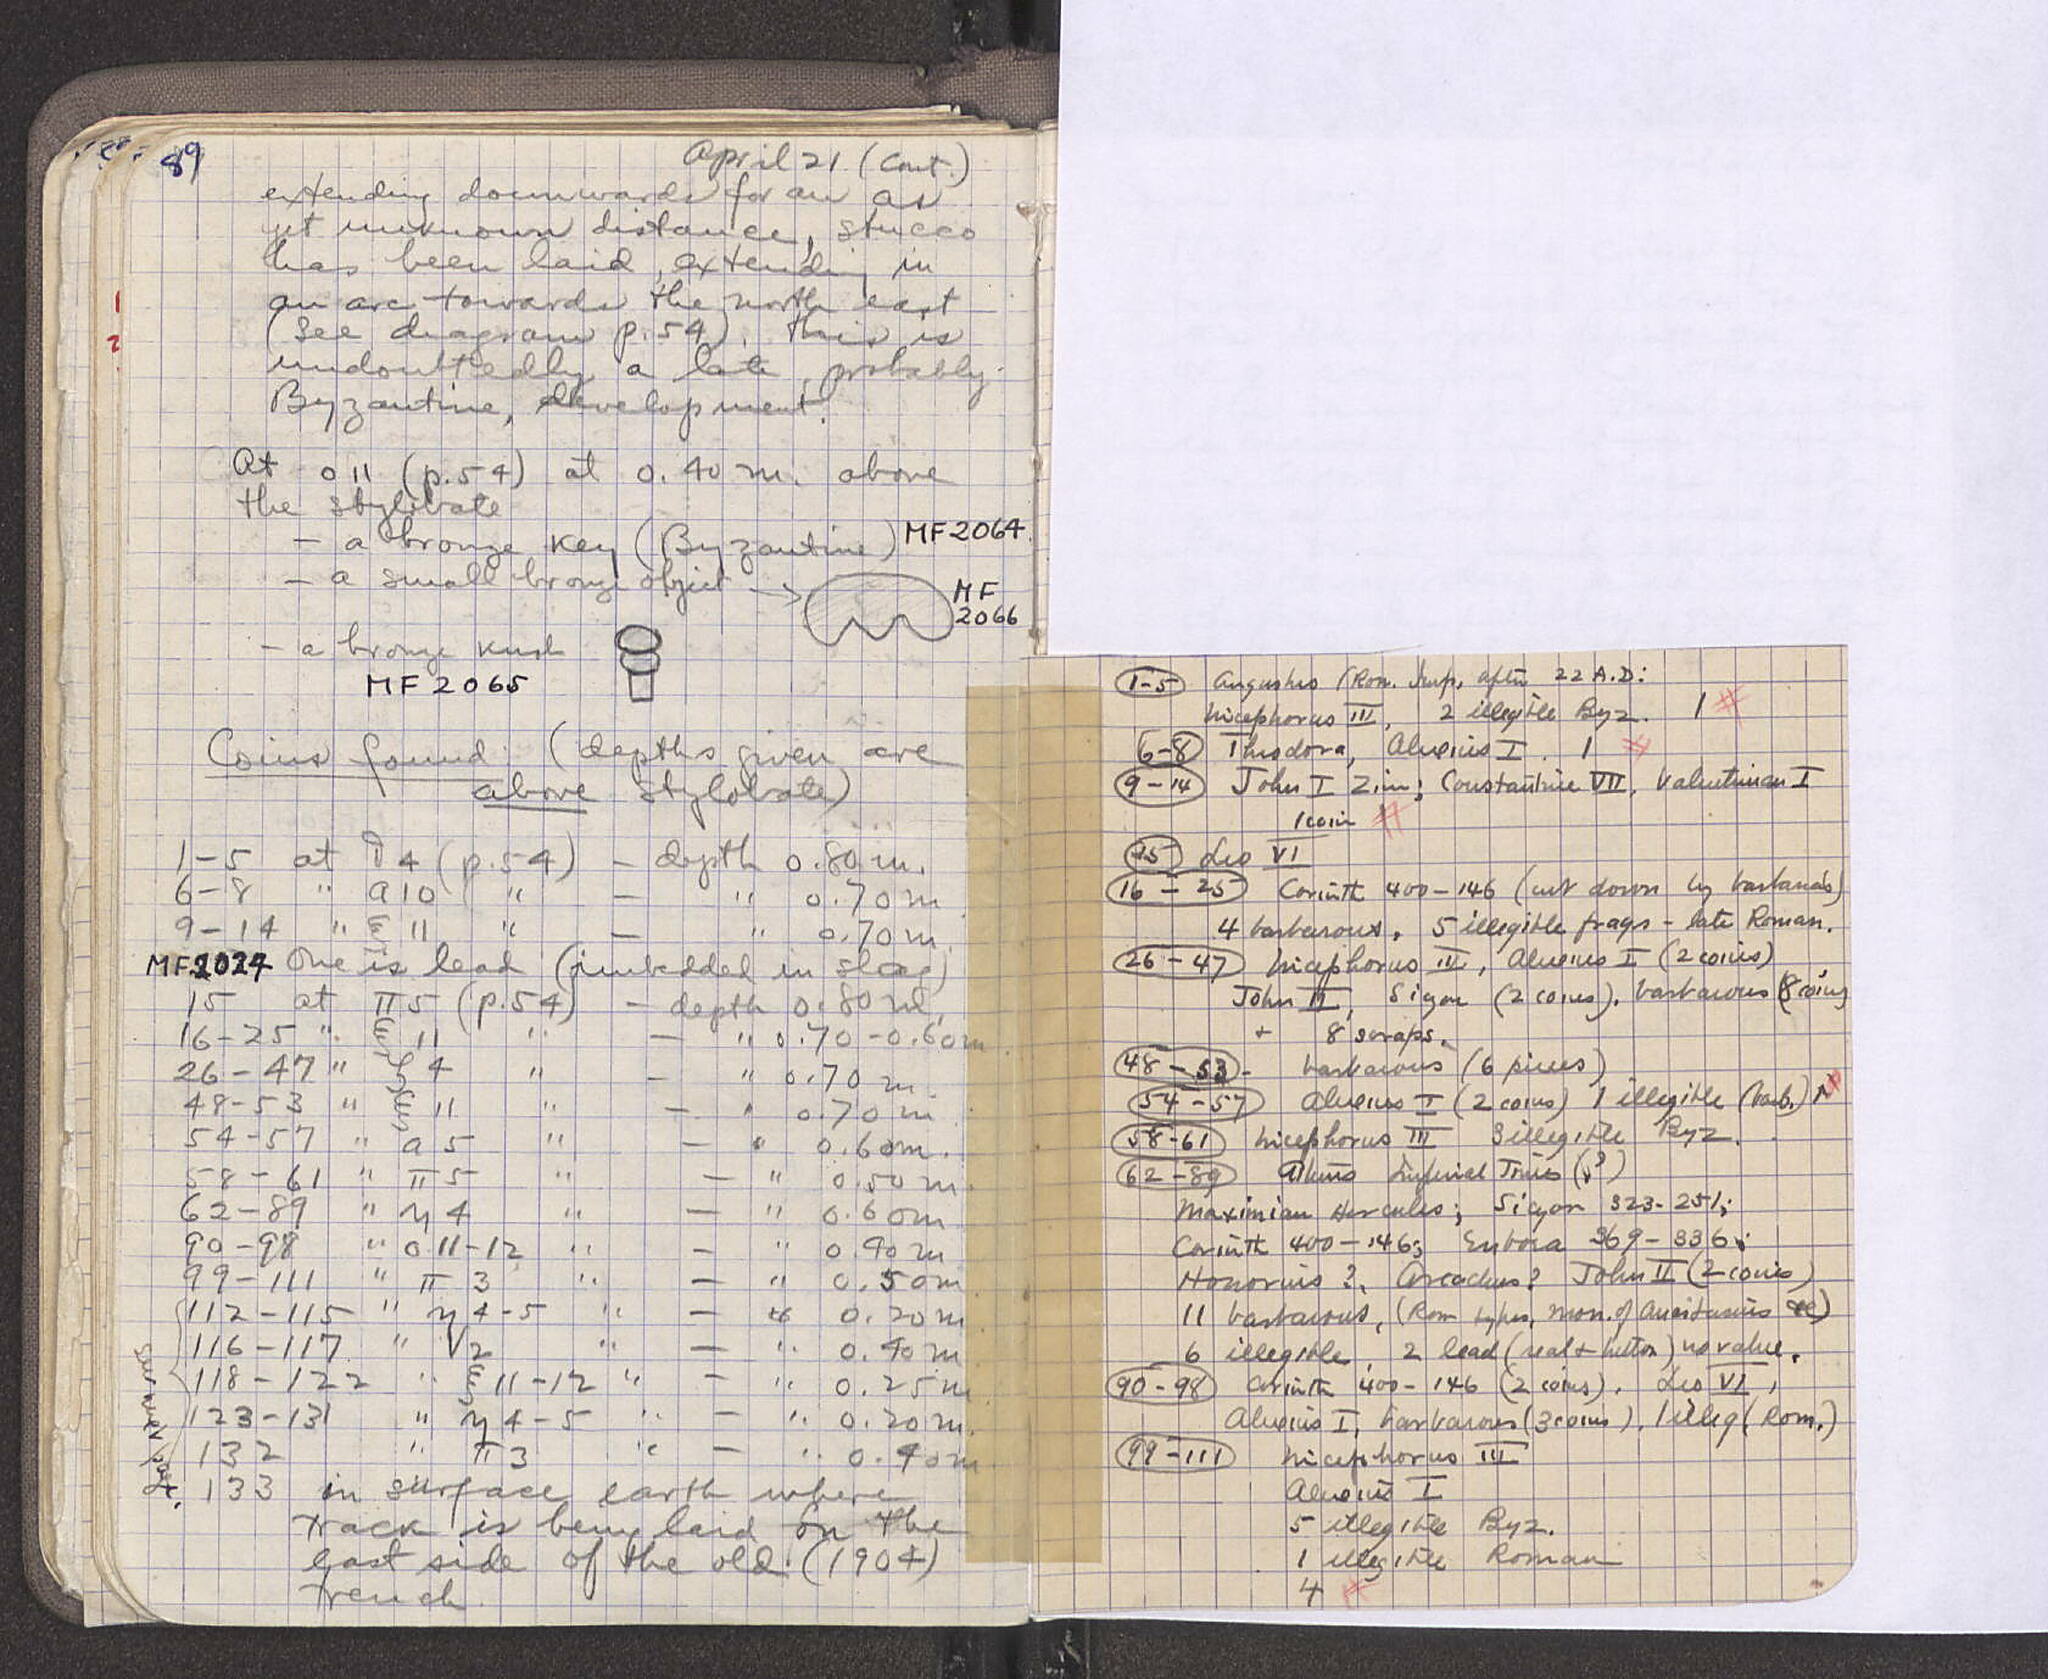 89
April 21 (Cont.)
extending downwards for an as
yet unknown distance, stucco
has been laid, extending in
an arc towards the north east
(see diagram p.54). This is
undoubtedly a late, probably
Byzantine, development.
At o 11 (p.54) at 0.40 m. above
the stylobate
- a bronze key (Byzantine) MF 2064
- a small bronze object →
MF
2066
- a bronze
MF 2065
Coins found: (depths given are
above stylobate)
1-5 at 4 (p.54) - depth 0.80 m.
6-8 " a 10 " - " 0.70 m
9-14 " ξ 11 " - " 0.70 m.
MF2027 One is lead (imbedded in slag)
15 at π5 (p.54) - depth 0.80 m,
16-25 " ξ 11 " - " 0.70-0.60m
26-47 " 4 " - " 0.70 m.
48-53 " ξ 11 " - " 0.70 m
54-57 " a 5 " - " 0.60m.
58-61 " π5 " - " 0.50 m.
62-89 " η4 " - " 0.60m
90-98 " o 11-12 " - " 0.90 m
99-111 " π 3 " - " 0.50m
112-115 " η 4-5 " - " 0.20 m
116-117 " V2 " - " 0.40 m
118-122 " ξ 11-12 " - " 0.25 m
123-131 " η 4-5 " - " 0.20 m.
132 " π3 " - " 0.40m
133 in surface earth where
track is being laid on the
east side of the old (1904)
trench
1-5 Augustus (Rom. Imp. after 22 A.D:
Nicephorus III, 2 illegible Byz. 1 #
6-8 Theodora, Alexius I. 1 #
9-14 John I Zim; Constantine VII, Valentinian I
1 coin #
15 Leo VI
16-25 Corinth 400-146 (cut down by barbarians)
4 barbarous, 5 illegible frags - late Roman.
26-47 Nicephorus III, Alexius I (2 coins)
John II, Sicyon (2 coins), barbarous (8 coins
+ 8 scraps.
48-53 - barbarous (6 pieces)
54-57 Alexius I (2 coins) 1 illegible (barb.)
58-61 Nicephorus III 3 illegible Byz.
62-89 Athens Imperial Times (?)
Maximian Hercules; Sicyon 323-251;
Corinth 400-146; Euboea 369-336;
Honorius?, Arcadius? John II (2 coins)
11 barbarous, (Rom types, mon. of Anastasius etc)
6 illegible, 2 lead (seal + button) no value.
90-98 Corinth 400-146 (2 coins). Leo VI,
Alexius I, barbarous (3 coins), 1 illeg (Rom.)
99-111 Nicephorus III
Alexius I
5 illegible Byz.
1 illegible Roman
4 #